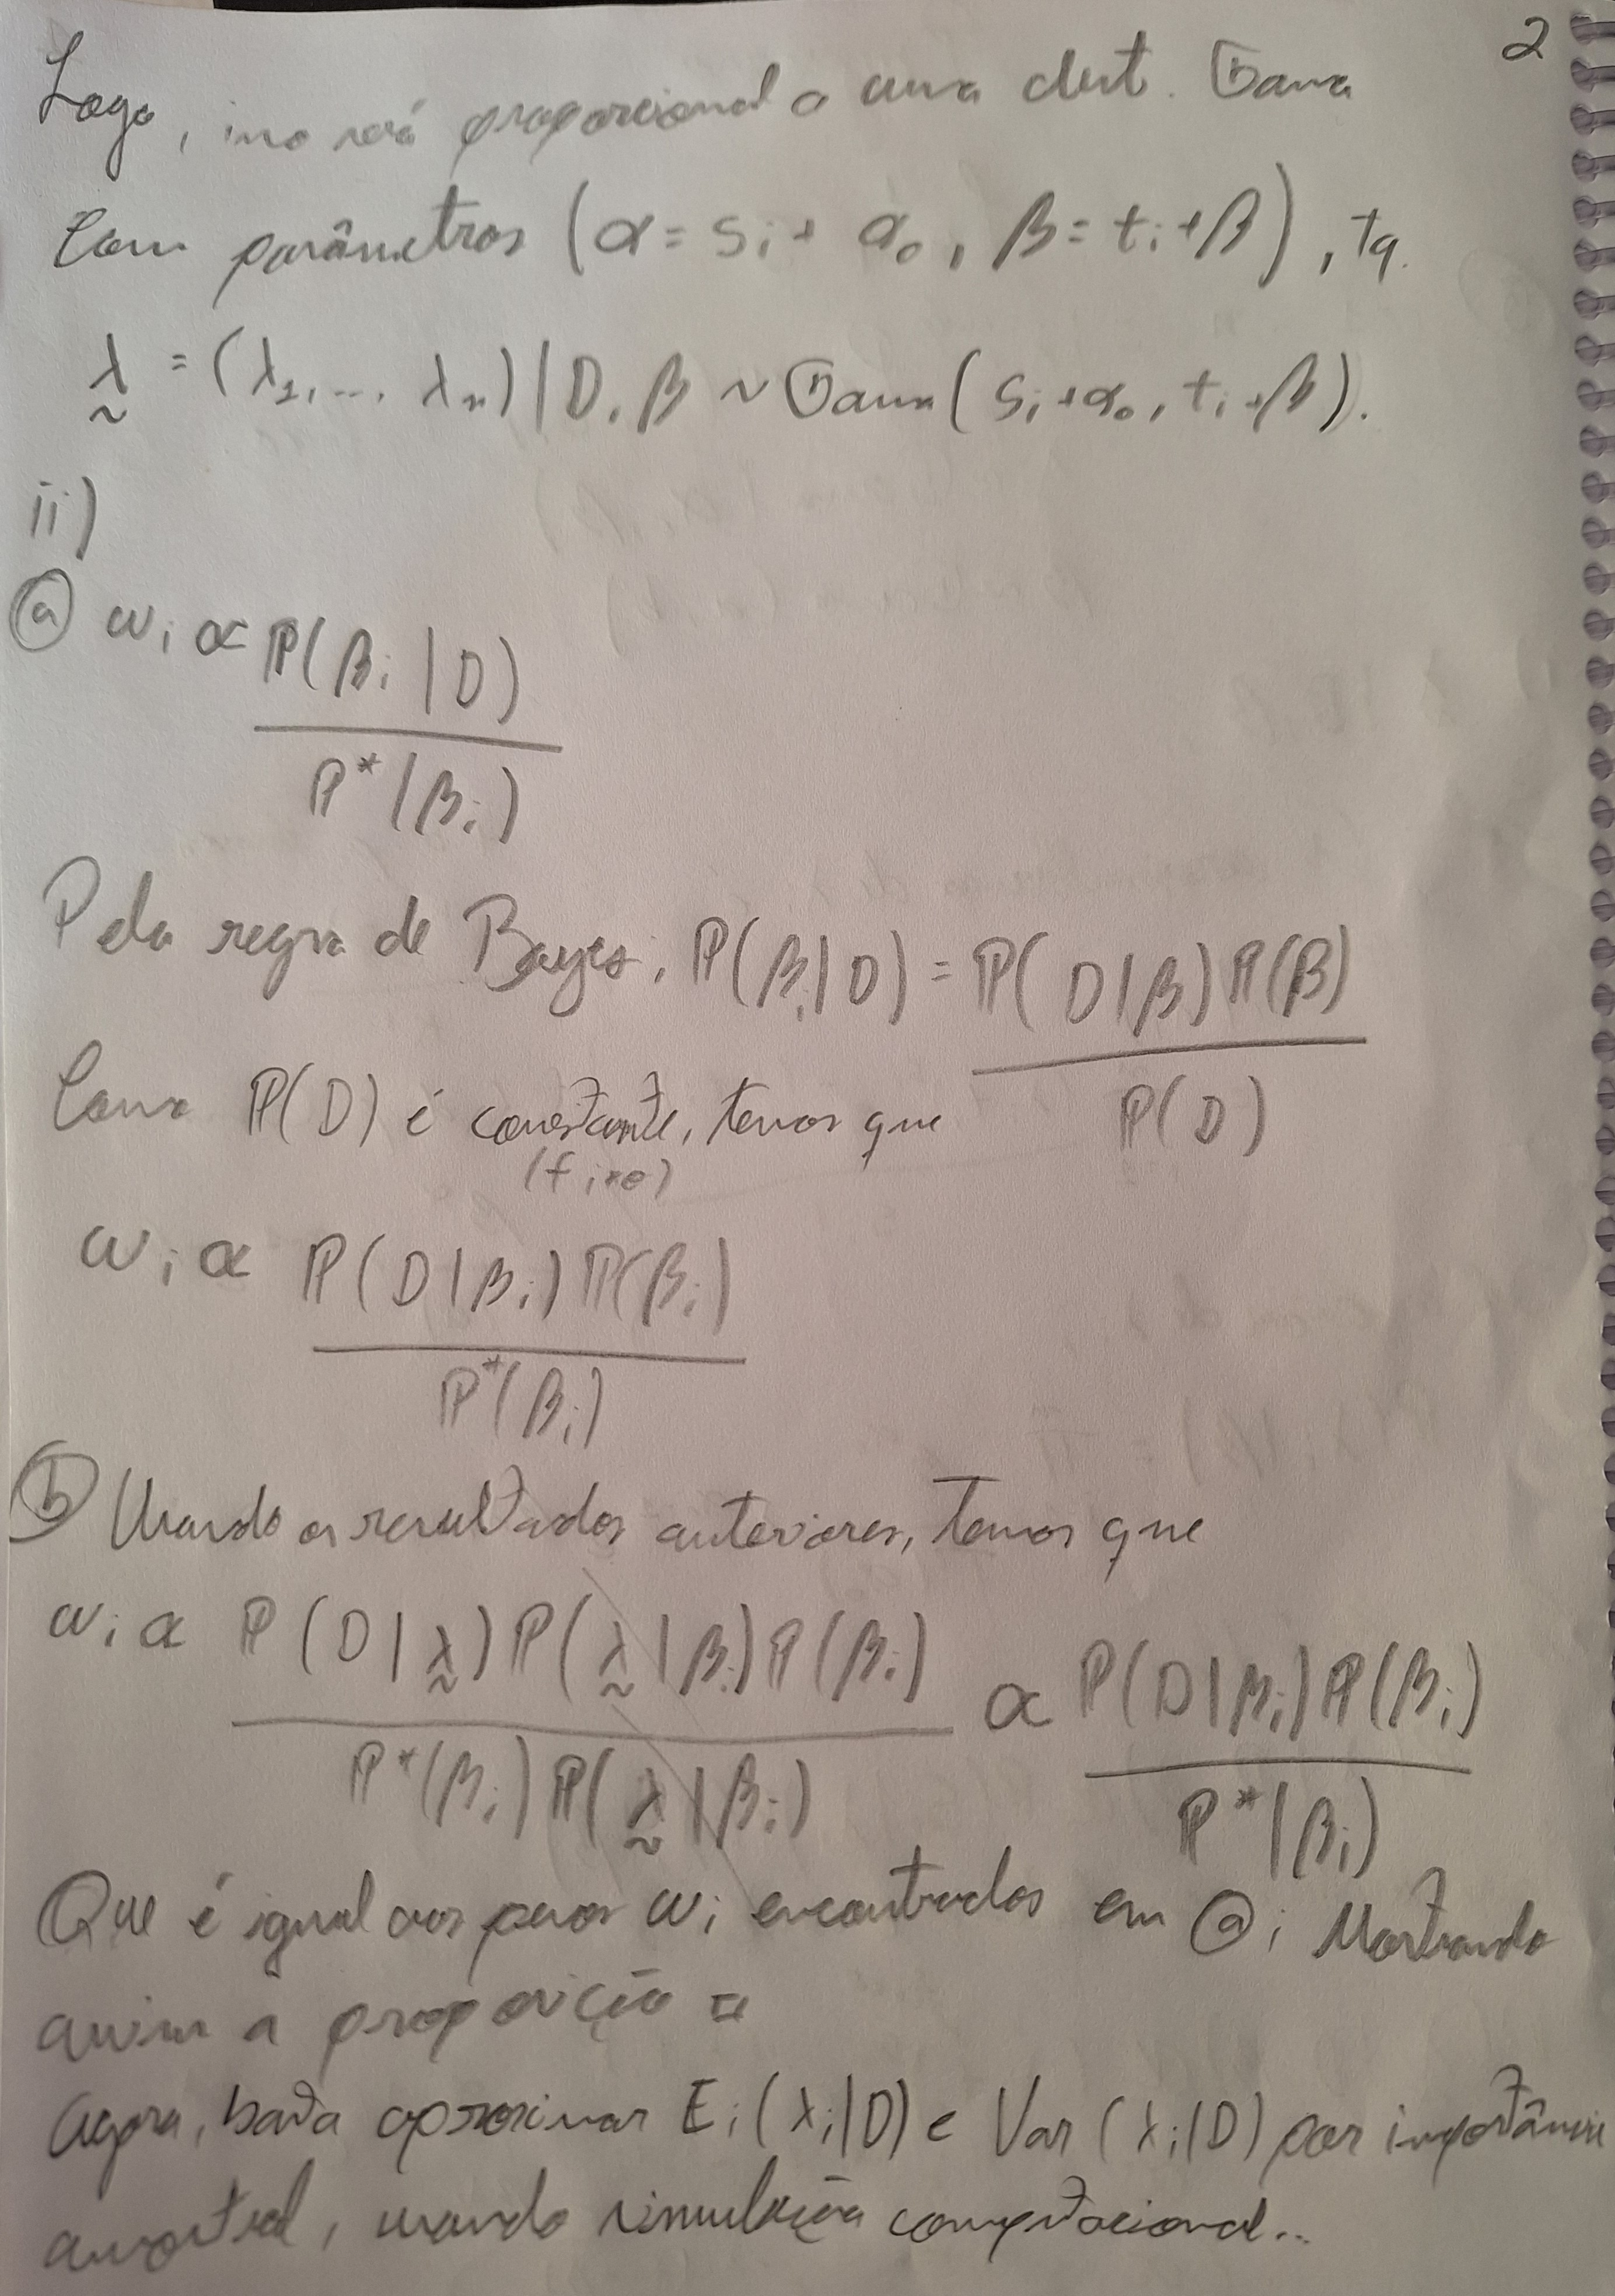 2
Logo, isso será proporcional a uma dist. Gama
com parâmetros (α = Si + α₀, β = ti + β), tq.
λ̰ = (λ₁, ... λₙ) | D, β ~ Gama (Si + α₀, ti + β).
ii)
ⓐ ωi ∝ ℙ(βi | D)
ℙ*(βi)
Pela regra de Bayes, ℙ(βi | D) = ℙ(D | β) ℙ(β)
Como ℙ(D) é constante, temos que ℙ(D)
(fixo)
ωi ∝ ℙ(D | βi) ℙ(βi)
ℙ*(βi)
ⓑ Usando os resultados anteriores, temos que
ωi ∝ ℙ(D | λ̰) ℙ(λ̰ | βi) ℙ(βi) ∝ ℙ(D | βi) ℙ(βi)
ℙ*(βi) ℙ(λ̰ | βi) ℙ*(βi)
Que é igual aos pesos ωi encontrados em ⓐ; Mostrando
assim a proposição □
Agora, basta aproximar Ei(λi | D) e Var(λi | D) por importância
amostral, usando simulação computacional..